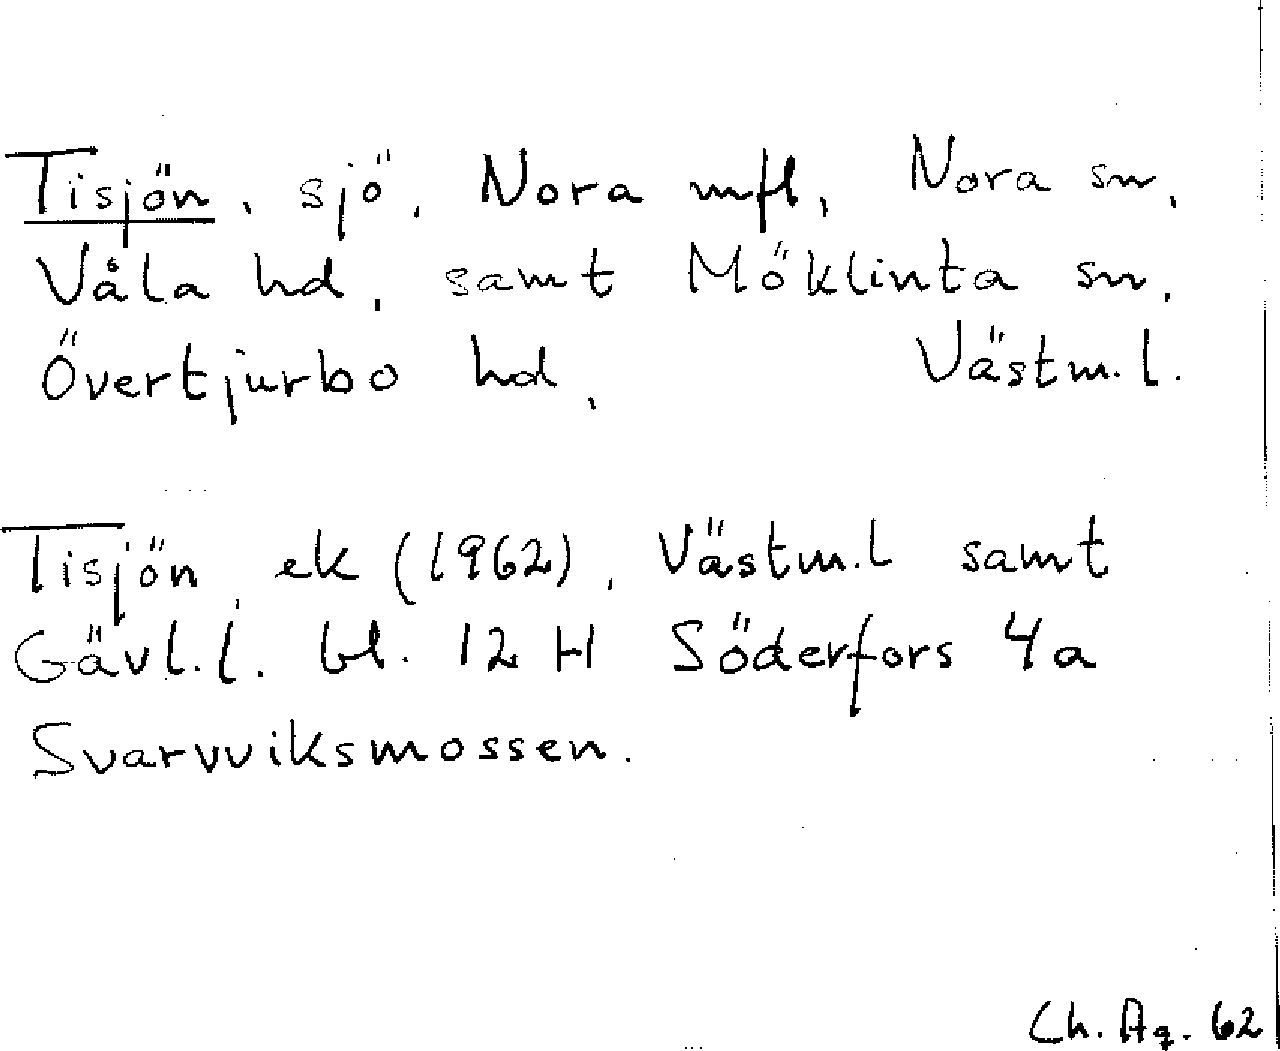 Tisjön, sjö, Nora mfl, Nora sn,
Våla hd, samt Möklinta sn,
Övertjurbo hd, Västm.l.
Tisjön, ek (1962), Västm.l samt
Gävl.l. bl. 12 H Söderfors 4a
Svarvviksmossen.
Ch. Ag. 62